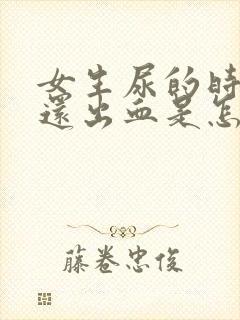 女生尿的时
還出血是怎
藤卷忠俊